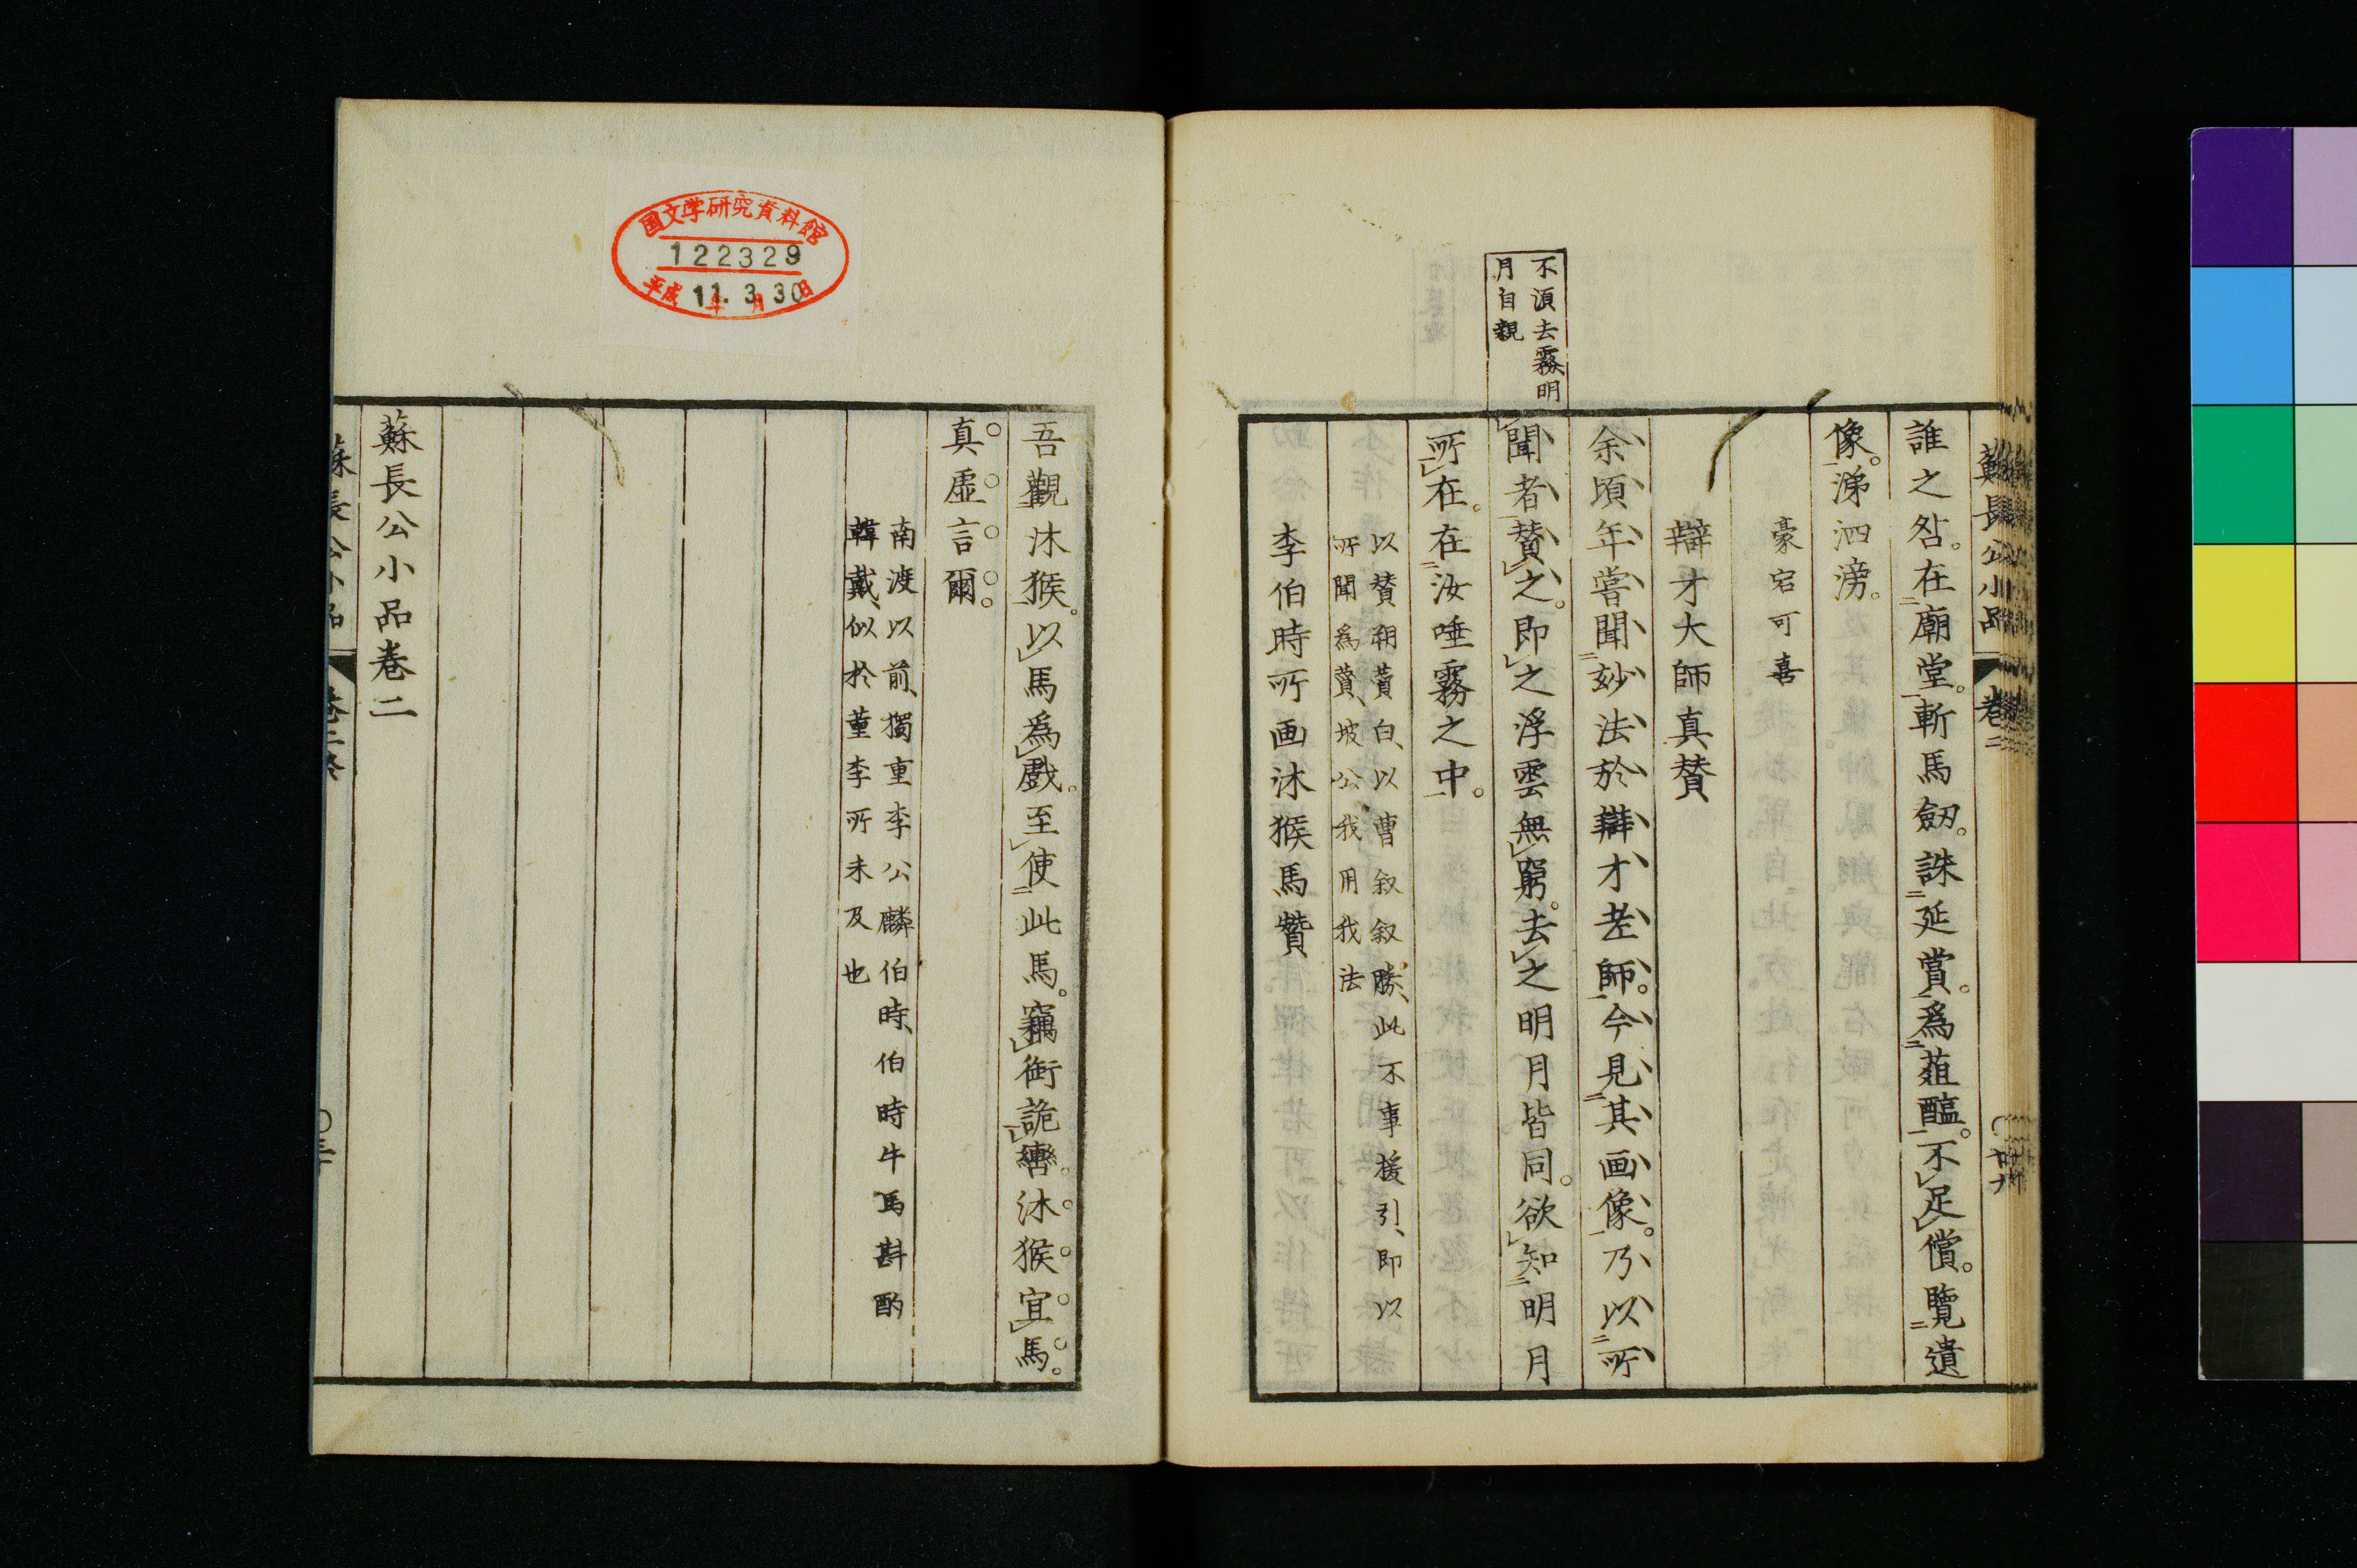 蘇長公小品 卷二
誰之咎。在廟堂。斬馬劔。誅延賞。爲葅醢。不足償。覽遺
像。涕泗滂。
豪宕可喜
辯才大師真賛
余頃年嘗聞妙法於辯才老師。今見其画像。乃以所
聞者賛之。即之浮雲無窮。去之明月皆同。欲知明月
所在。在汝唾霧之中。
不湏去霧明
月自親
以賛朔蕢白、以曹叙叙勝、此不事援引、即以
所聞爲蕢、坡公我用我法
李伯時所画沐猴馬贊
吾觀沐猴。以馬爲戲。至使此馬。竊銜詭轡。沐猴宜馬。
真虛言爾。
南渡以前、獨重李公麟伯時、伯時牛馬斟酌
韓戴、似於董李所未及也
蘇長公小品卷二
国文学研究資料館
122329
平成11年3月30日